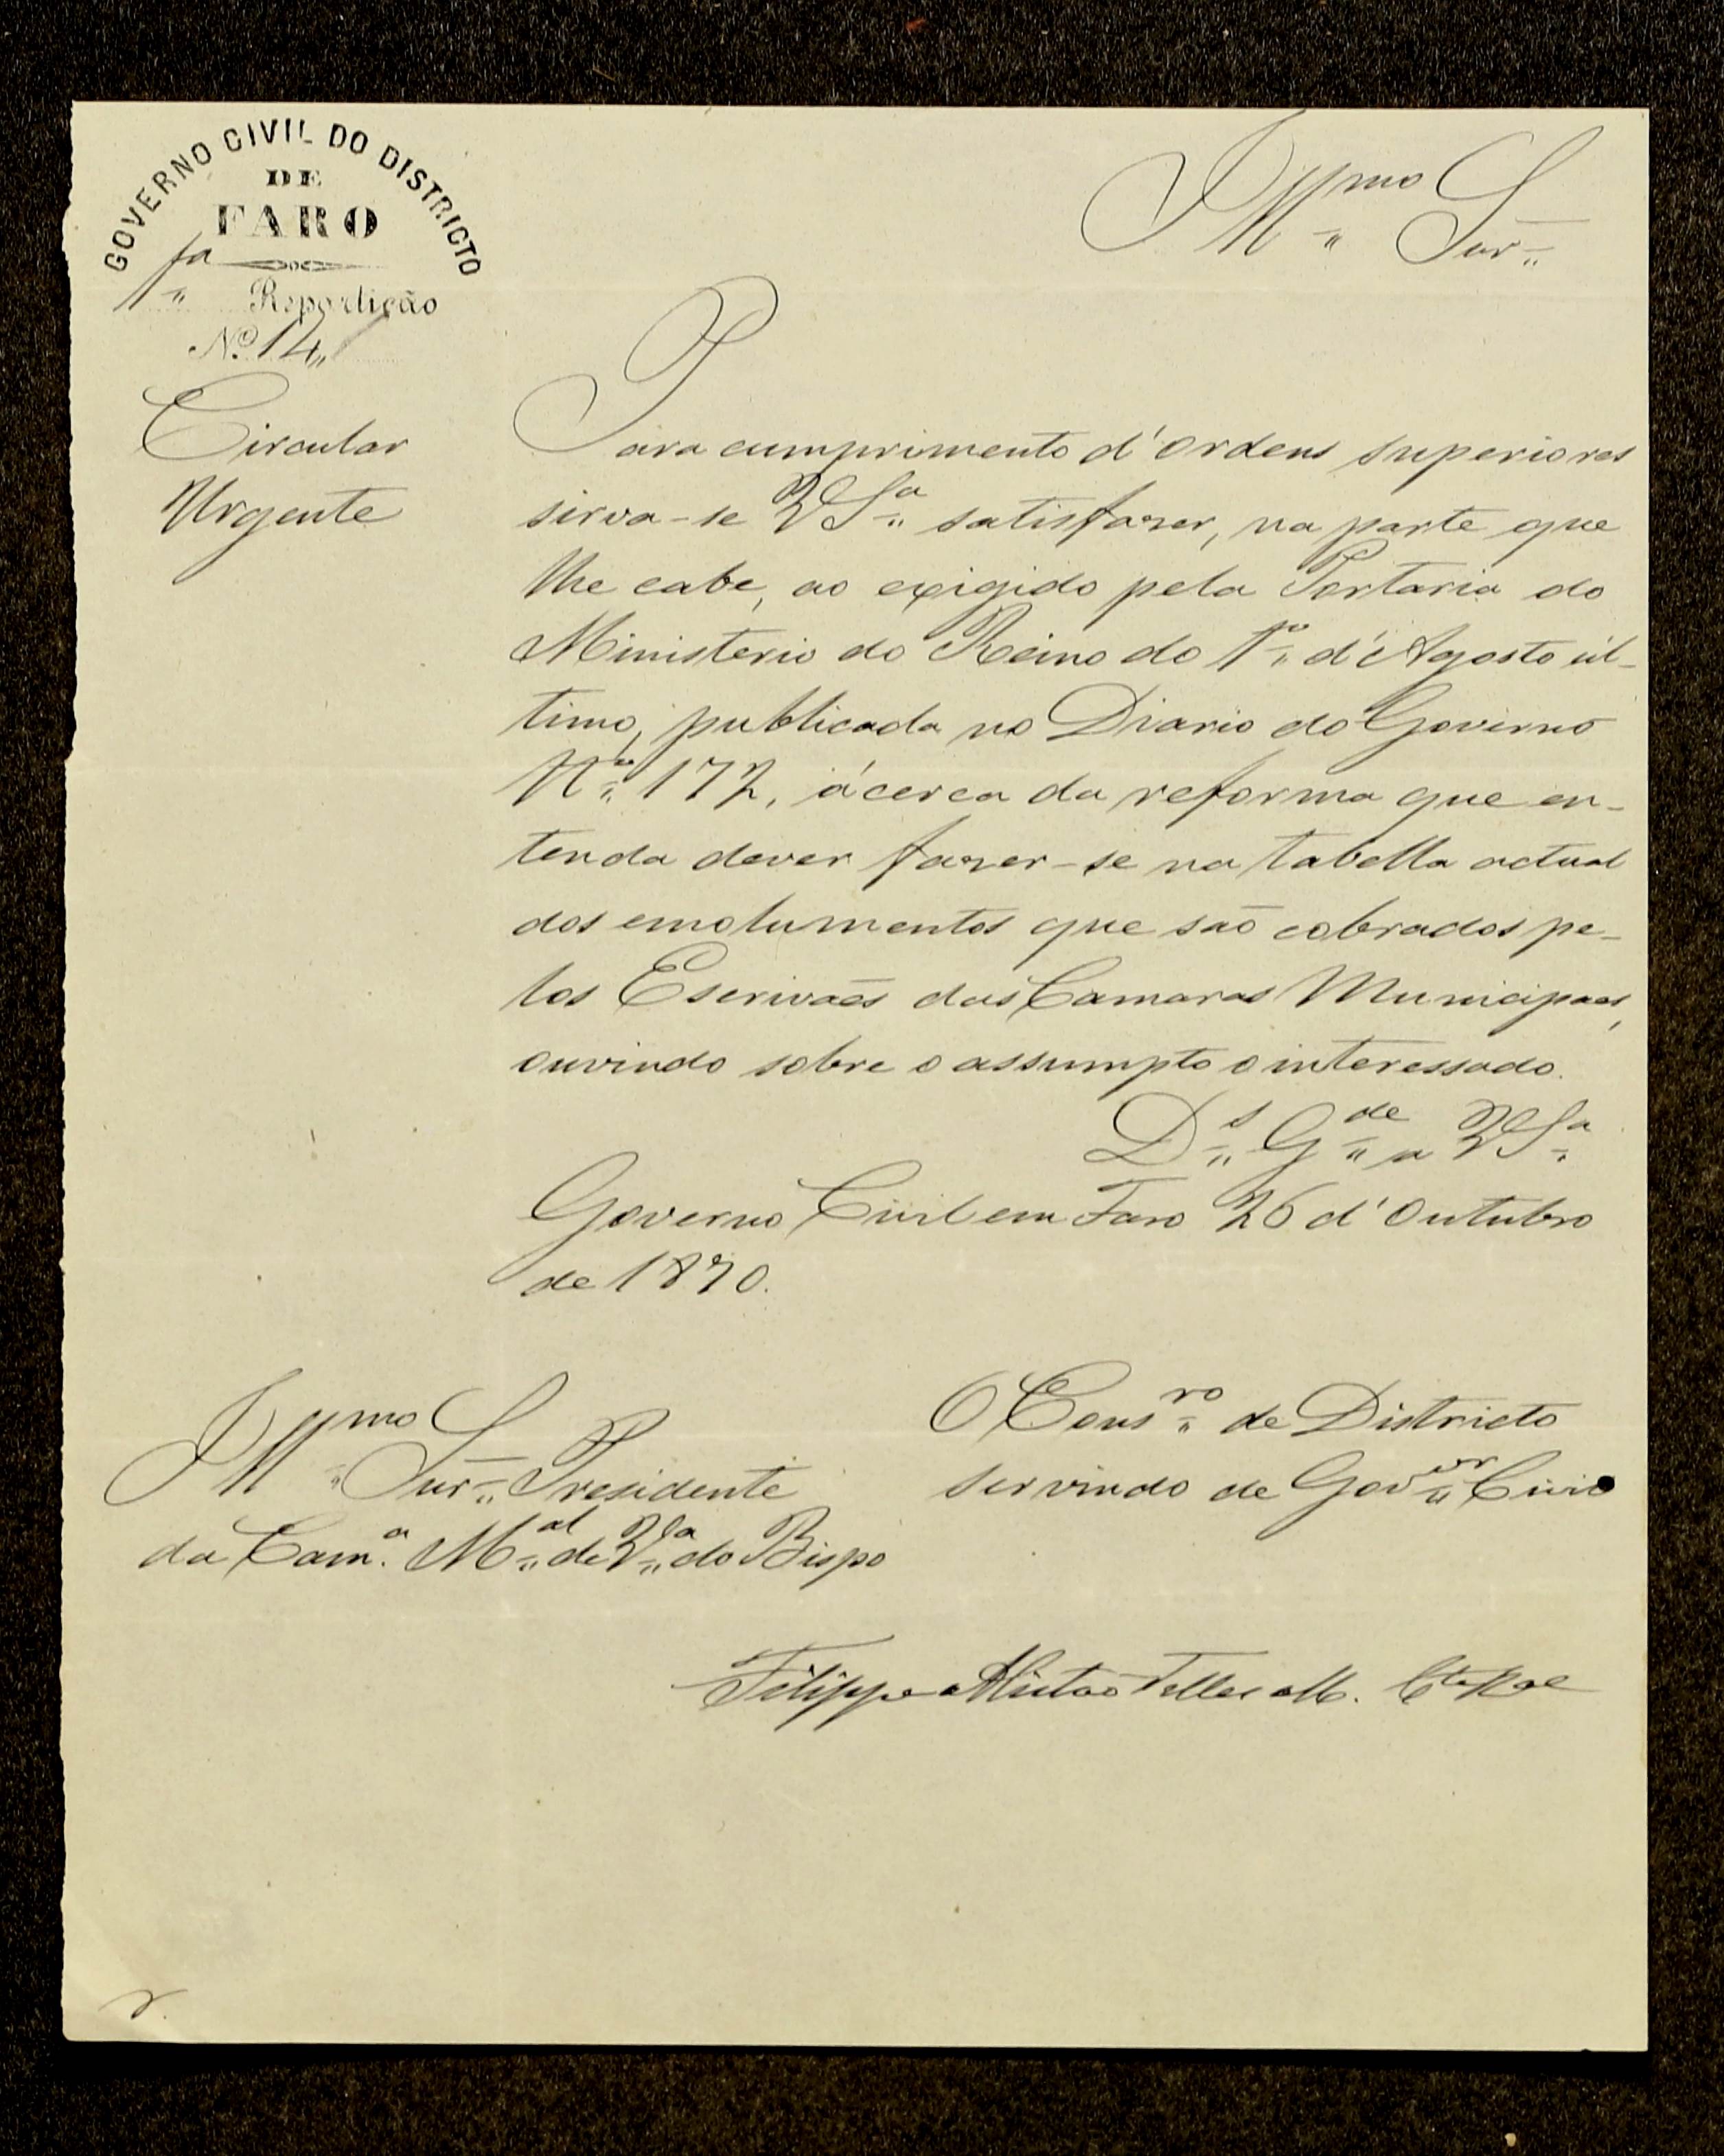 GOVERNO CIVIL DO DISTRICTO
DE
FARO
1ª Repartição
Nº 14
Circular
Urgente
Illmo Snr
Para cumprimento d'ordens superiores
sirva-se VSª satisfazer, na parte que
lhe cabe, ao exigido pela Portaria do
Ministerio do Reino do 1º d'Agosto úl-
timo, publicada no Diario do Governo
Nº 172, ácerca da reforma que en-
tenda dever fazer-se na tabella actual
dos emolumentos que são cobrados pe-
los Escrivães das Camaras Municipaes,
ouvindo sobre o assumpto o interessado.
Ds Gde a VSª
Governo Civil em Faro 26 d'Outubro
de 1870.
O Consro de Districto
servindo de Govor Civil
Illmo Snr Presidente
da Camª Mal de Vla do Bispo
Filippe Telles